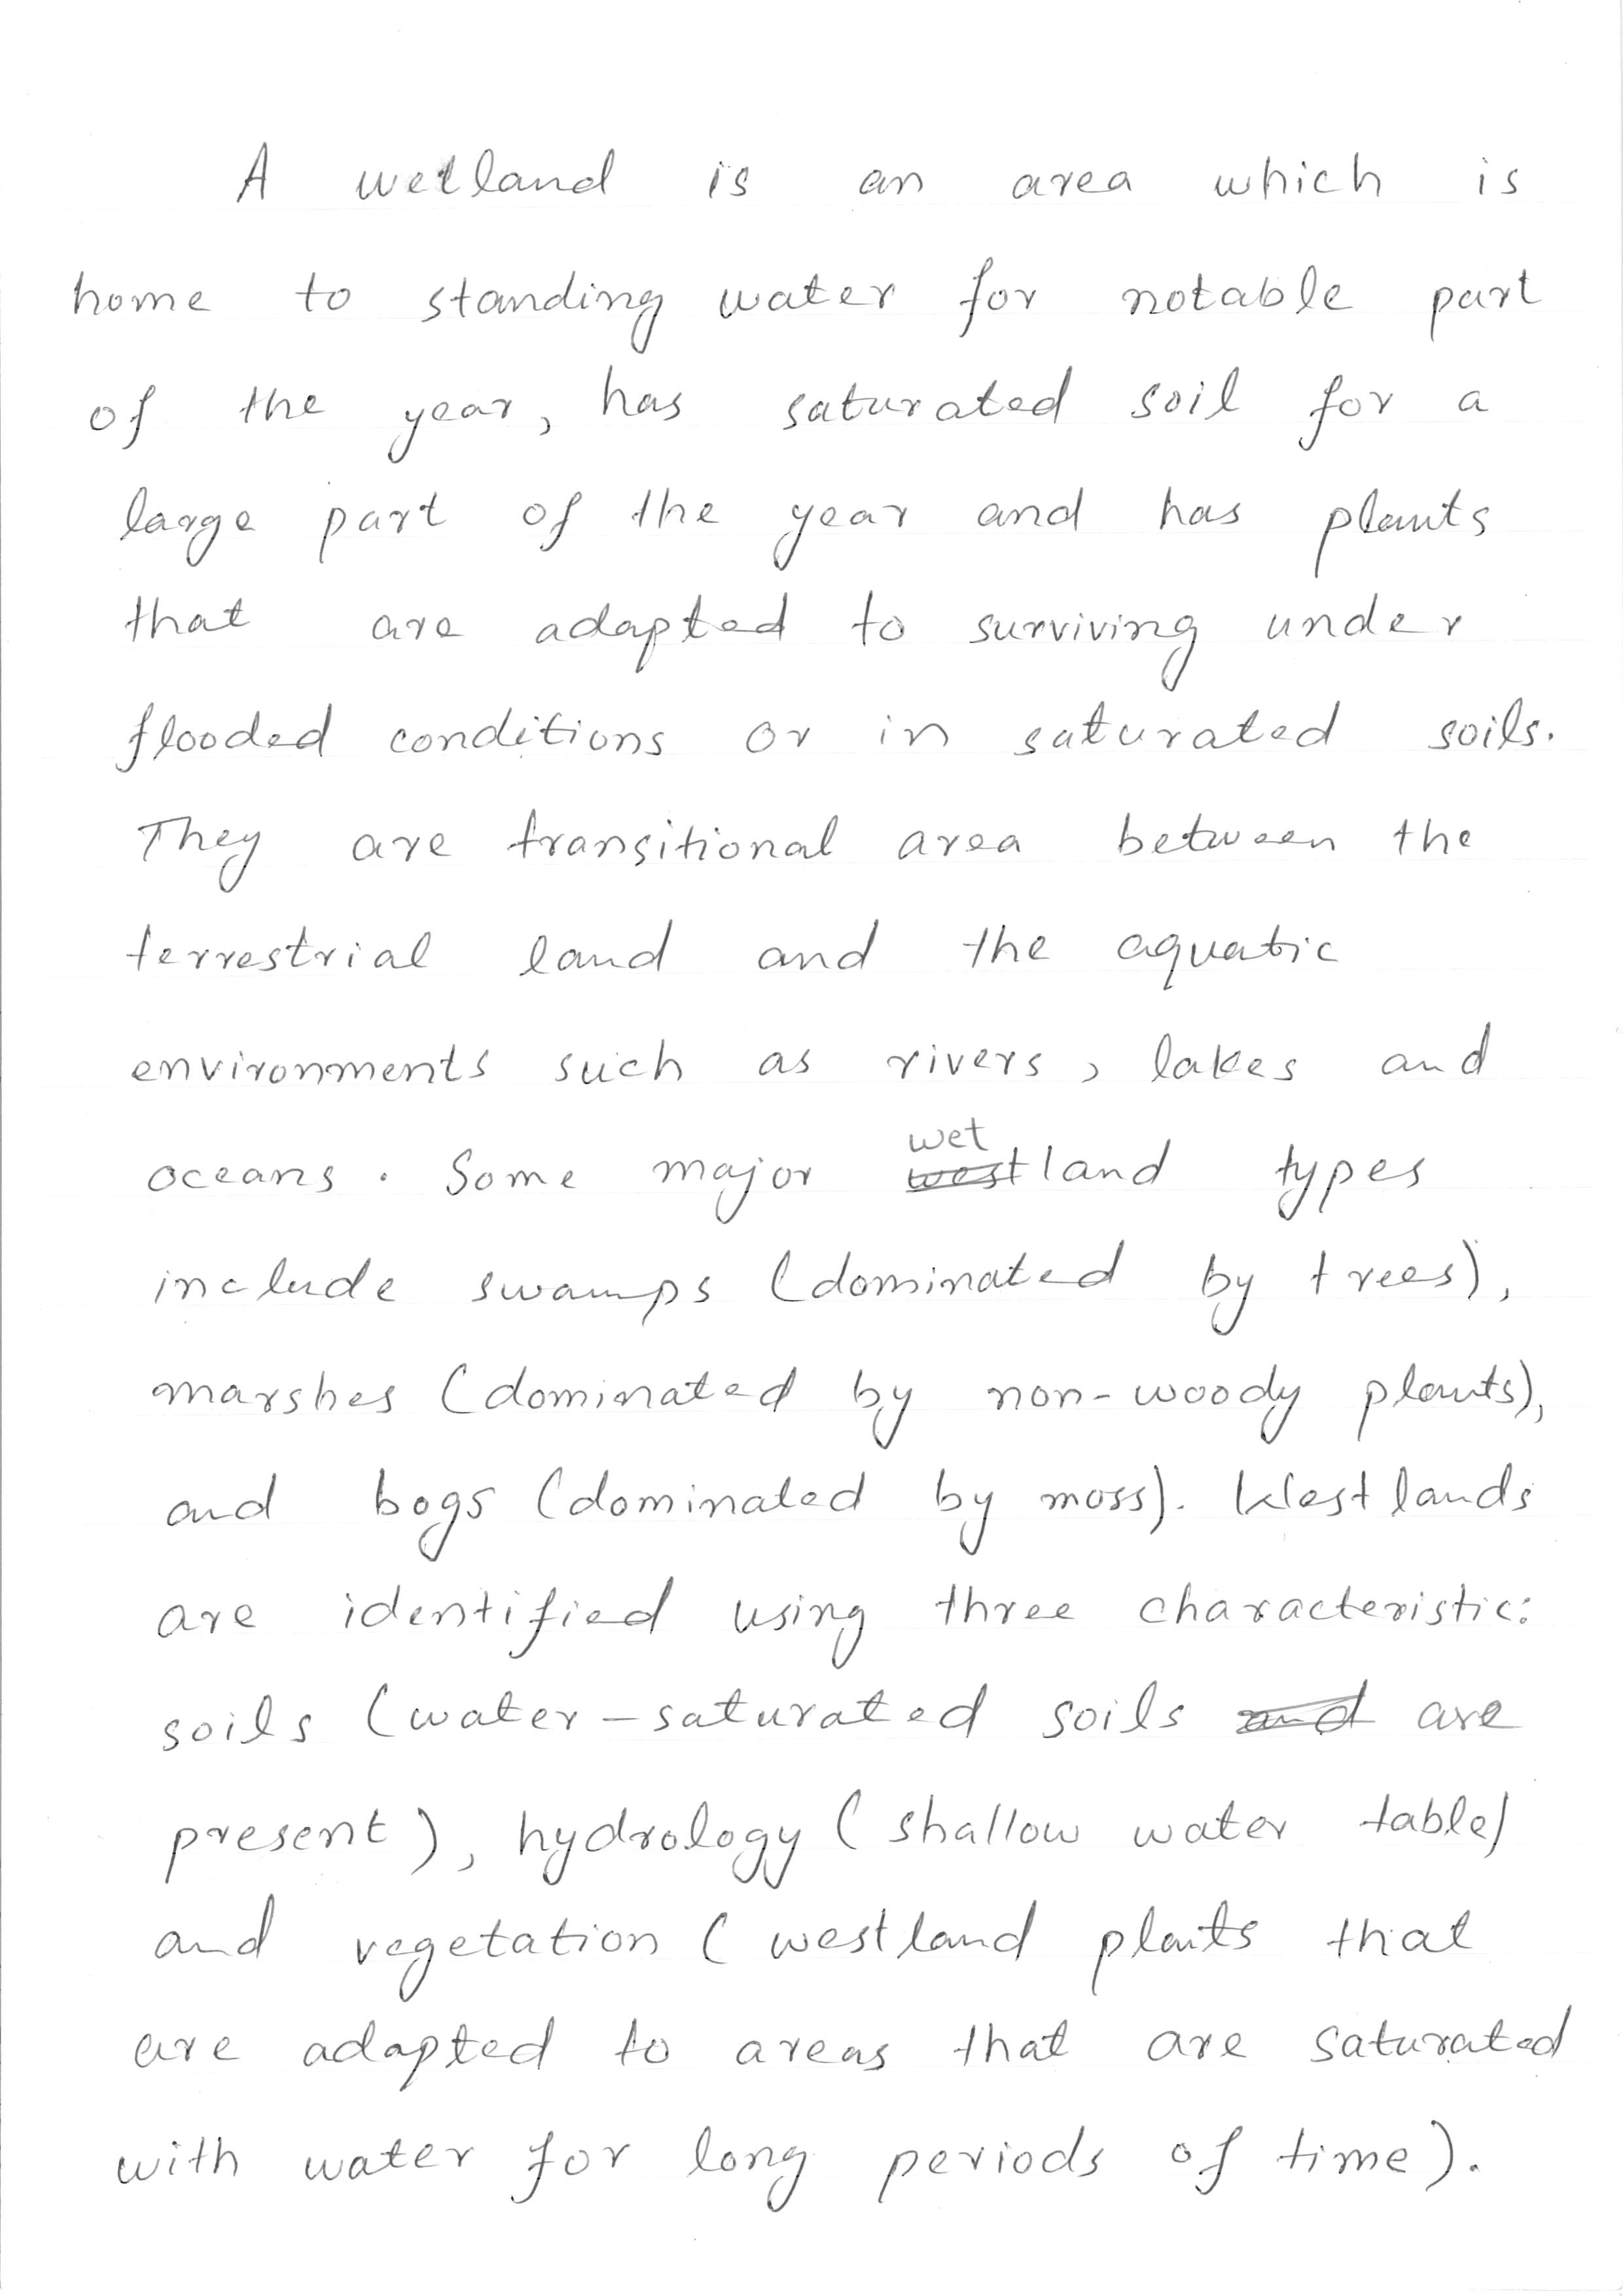 A wetland is an area which is
home to standing water for notable part
of the year, has saturated soil for a
large part of the year and has plants
that are adapted to surviving under
flooded conditions or in saturated soils.
They are transitional area between the
terrestrial land and the aquatic
environments such as rivers, lakes and
oceans. Some major wetland types
include swamps (dominated by trees),
marshes (dominated by non-woody plants),
and bogs (dominated by moss). Westlands
are identified using three characteristic:
soils (water-saturated soils are
present), hydrology (shallow water table)
and vegetation (westland plants that
are adapted to areas that are saturated
with water for long periods of time).